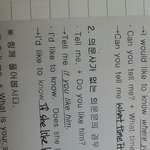 →I would like to know where
• Can you tell me? + What time
→Can you tell me what time it
2. 의문사가 없는 의문문의 경우
• Tell me. + Do you like him?
→Tell me if you like him
• I'd like to know. + Does she
→I'd like to know if she like
※ 함께 풀어봅시다.
me. + What is your